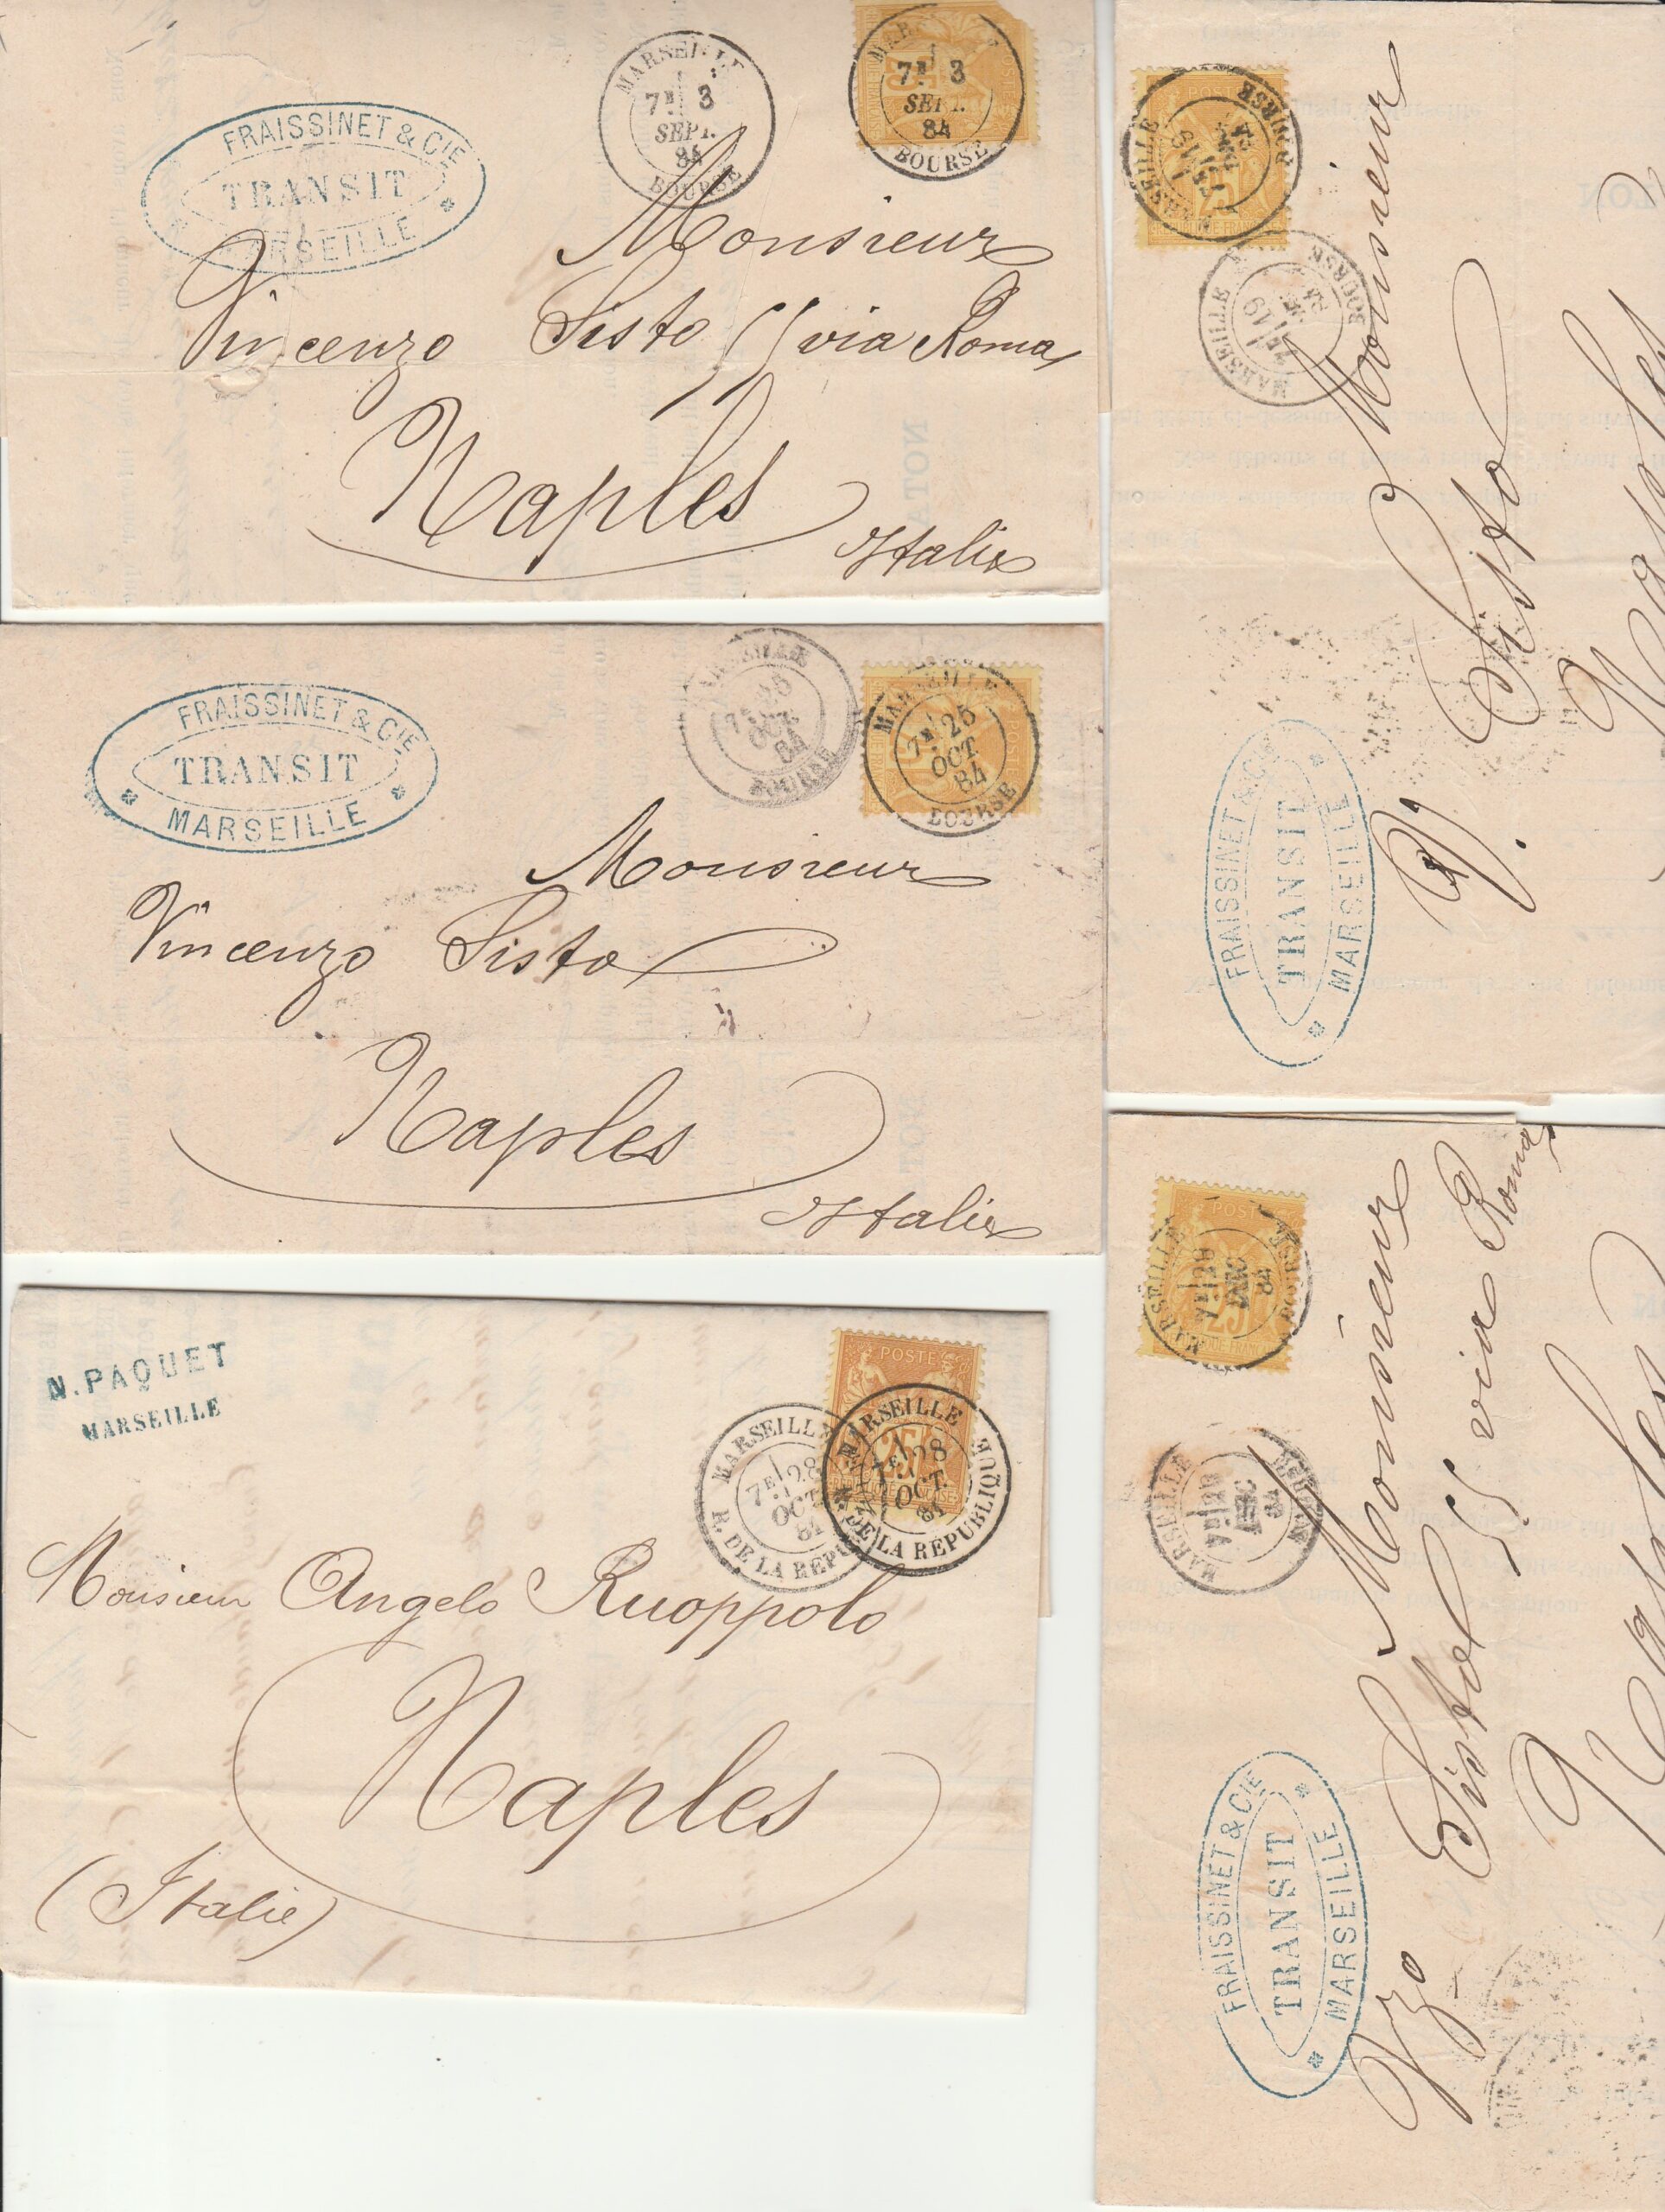 FRAISSINET & CIE
TRANSIT
MARSEILLE
MARSEILLE
7E 3
SEPT.
84
BOURSE
7E 3
SEPT.
84
BOURSE
Monsieur
Vincenzo Sisto 55 via Roma
Naples
Italie
FRAISSINET & CIE
TRANSIT
MARSEILLE
MARSEILLE
7E 25
OCT.
84
BOURSE
MARSEILLE
7E 25
OCT.
84
BOURSE
Monsieur
Vincenzo Sisto
Naples
Italie
N. PAQUET
MARSEILLE
POSTE
25
MARSEILLE
7E 28
OCT.
81
R. DE LA REPU
MARSEILLE
7E 28
OCT.
81
R. DE LA REPUBLIQUE
Monsieur Angelo Ruoppolo
Naples
(Italie)
POSTE
25
MARSEILLE
BOURSE
MARSEILLE
BOURSE
FRAISSINET & CIE
TRANSIT
MARSEILLE
Monsieur
V. Sisto
Naples
POSTE
25
MARSEILLE
7E 28
DEC
84
BOURSE
MARSEILLE
7E 28
DEC
84
FRAISSINET & CIE
TRANSIT
MARSEILLE
Monsieur
Vzo Sisto 55 via Roma
Naples